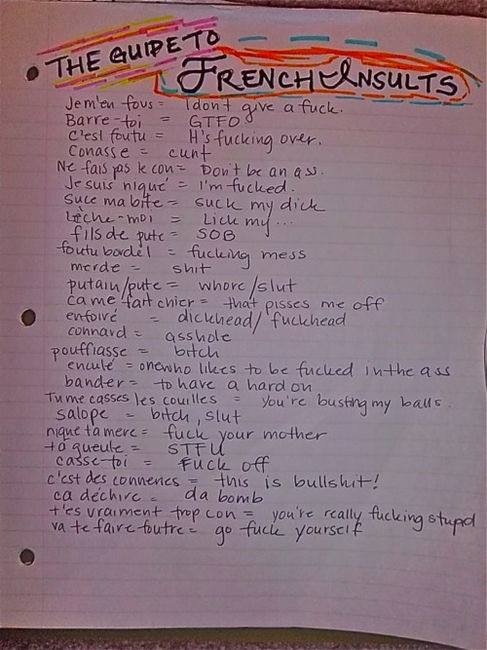 THE GUIDE TO
FRENCH INSULTS
Je m'en fous = I don't give a fuck.
Barre-toi = GTFO
C'est foutu = It's fucking over.
Conasse = cunt
Ne fais pas le con = Don't be an ass.
Je suis niqué = I'm fucked.
Suce ma bite = suck my dick
Lèche-moi = Lick my...
fils de pute = SOB
foutu bordel = fucking mess
merde = shit
putain/pute = whore/slut
ca me fait chier = that pisses me off
enfoiré = dickhead/fuckhead
connard = asshole
pouffiasse = bitch
enculé = one who likes to be fucked in the ass
bander = to have a hard on
Tu me casses les couilles = you're busting my balls.
salope = bitch, slut
nique ta mere = fuck your mother
ta gueule = STFU
casse-toi = Fuck off
c'est des conneries = this is bullshit!
ca déchire = da bomb
t'es vraiment trop con = you're really fucking stupid
va te faire foutre = go fuck yourself